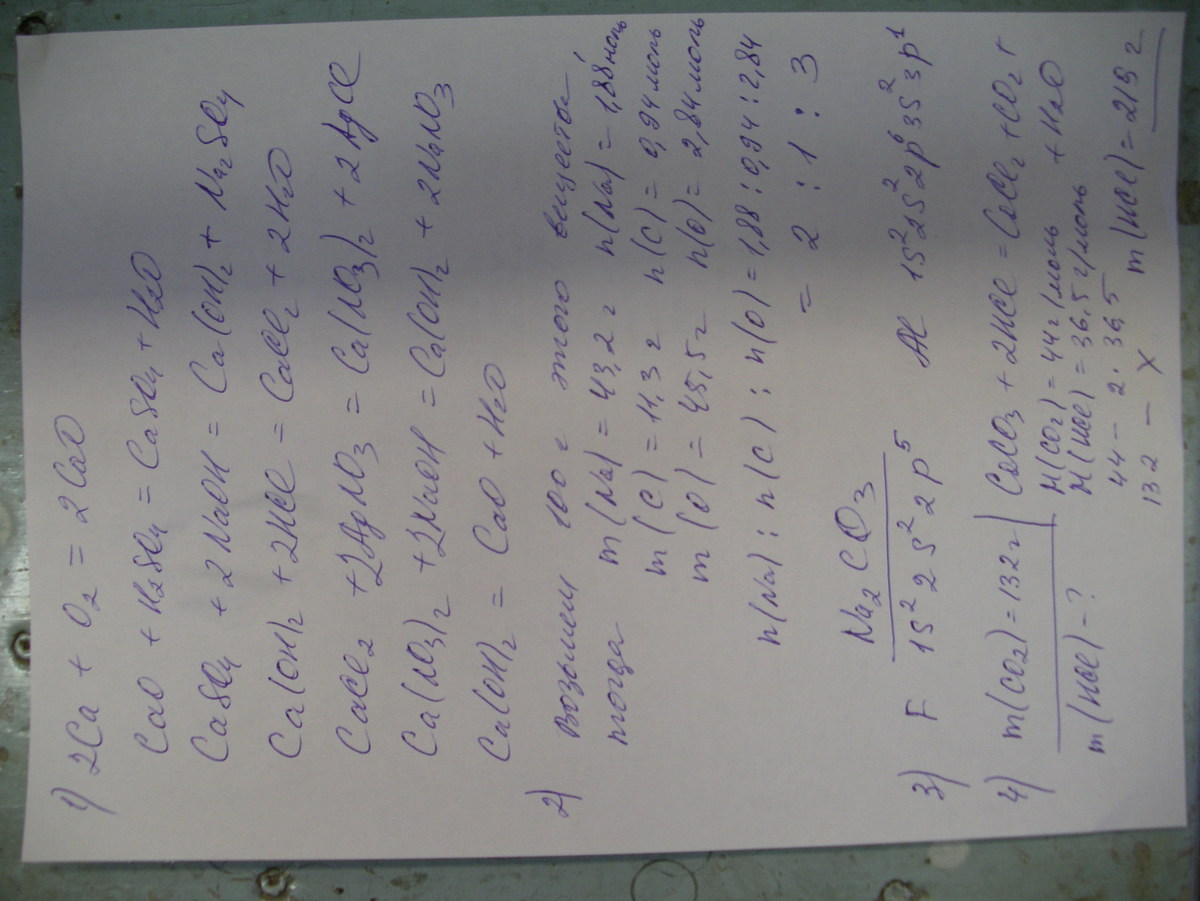 1) 2Ca + O2 = 2CaO
CaO + H2SO4 = CaSO4 + H2O
CaSO4 + 2NaOH = Ca(OH)2 + Na2SO4
Ca(OH)2 + 2HCl = CaCl2 + 2H2O
CaCl2 + 2AgNO3 = Ca(NO3)2 + 2AgCl
Ca(NO3)2 + 2NaOH = Ca(OH)2 + 2NaNO3
Ca(OH)2 = CaO + H2O
2) Возьмем 100 г этого вещества,
тогда m(Na) = 43,2 г n(Na) = 1,88 моль
m(C) = 11,3 г n(C) = 0,94 моль
m(O) = 45,5 г n(O) = 2,84 моль
n(Na) : n(C) : n(O) = 1,88 : 0,94 : 2,84
= 2 : 1 : 3
Na2CO3
3) F 1s² 2s² 2p⁵ Al 1s² 2s² 2p⁶ 3s² 3p¹
4) m(CO2) = 132 г CaCO3 + 2HCl = CaCl2 + CO2↑
+ H2O
m(HCl) - ? M(CO2) = 44 г/моль
M(HCl) = 36,5 г/моль
44 — 2·36,5
132 — x m(HCl) = 219 г